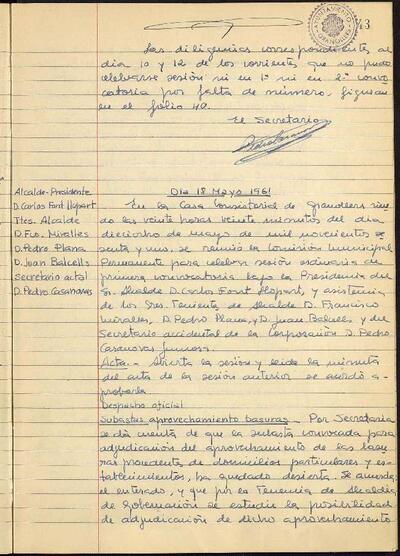 AYUNTAMIENTO GRANOLLERS
43
Las diligencias correspondientes al
dia 10 y 12 de los corrientes que no pudo
celebrarse sesión ni en 1ª ni en 2ª convo
catoria por falta de número, figuran
en el folio 40.
El Secretario
Alcalde-Presidente
D. Carlos Font Llopart
Ttes. Alcalde
D. Fco. Miralles
D. Pedro Plana
D. Joan Balcells
Secretario actal
D. Pedro Casanovas
Dia 18 Mayo 1961
En la Casa Consistorial de Granollers sien
do las veinte horas veinte minutos del dia
dieciocho de mayo de mil novecientos se
senta y uno, se reunió la Comisión Municipal
Permanente para celebrar sesión ordinaria en
primera convocatoria bajo la Presidencia del
Sr. Alcalde D. Carlos Font Llopart, y asistencia
de los Sres. Teniente de Alcalde D. Francisco
Miralles, D. Pedro Plana, y D. Juan Balcells y del
Secretario accidental de la Corporación D. Pedro
Casanovas
Acta.- Abierta la sesión y leida la minuta
del acta de la sesión anterior se acordó a-
probarla
Despacho oficial
Subastas aprovechamiento basuras.- Por Secretaria
se dá cuenta de que la subasta convocada para
adjudicación del aprovechamiento de las basu
ras procedente de domicilios particulares y es-
tablecimientos, ha quedado desierta. Se acuerda
el enterado, y que por la Tenencia de Alcaldia
de Gobernación se estudie la posibilidad
de adjudicación de dicho aprovechamiento